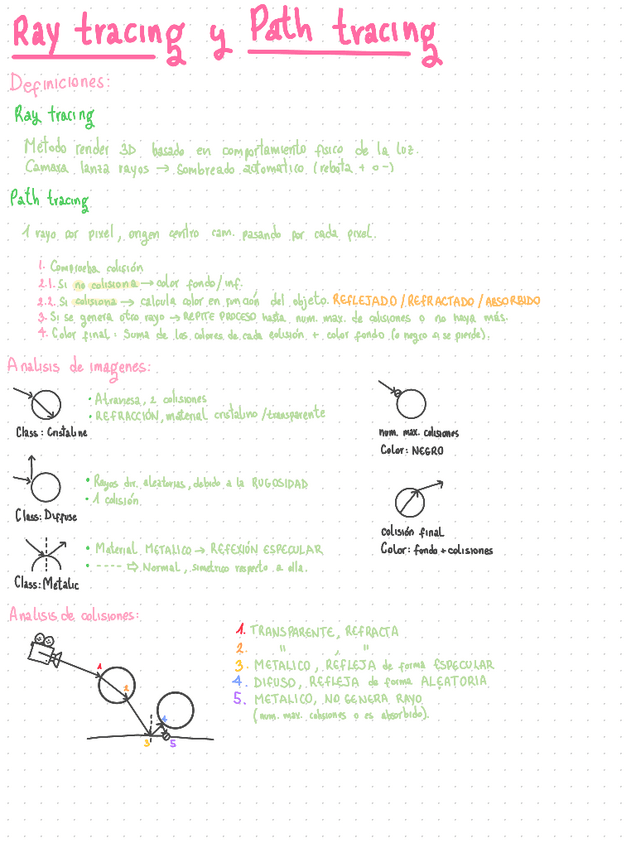 Ray tracing y Path tracing
Definiciones:
Ray tracing
Metodo render 3D basado en comportamiento fisico de la luz.
Camara lanza rayos → Sombreado automatico (rebota + o -)
Path tracing
1 rayo por pixel, origen centro cam. pasando por cada pixel.
1. Comprueba colisión
2.1. Si no colisiona → color fondo/inf.
2.2. Si colisiona → calcula color en función del objeto. REFLEJADO / REFRACTADO / ABSORBIDO
3. Si se genera otro rayo → REPITE PROCESO hasta num. max. de colisiones o no haya más.
4. Color final: Suma de los colores de cada colisión + color fondo (o negro si se pierde).
Analisis de imagenes:
• Atraviesa, 2 colisiones
• REFRACCIÓN, material cristalino/transparente
Class: Cristaline
num. max. colisiones
Color: NEGRO
• Rayos dir. aleatorias, debido a la RUGOSIDAD
• 1 colisión
Class: Diffuse
colisión final
Color: fondo + colisiones
• Material METALICO → REFEXIÓN ESPECULAR
• ---- ⇨ Normal, simetrico respecto a ella.
Class: Metalic
Analisis de colisiones:
1. TRANSPARENTE, REFRACTA
2. " , "
3. METALICO, REFLEJA de forma ESPECULAR
4. DIFUSO, REFLEJA de forma ALEATORIA
5. METALICO, NO GENERA RAYO
(num. max. colisiones o es absorbido).
1
2
3
4
5